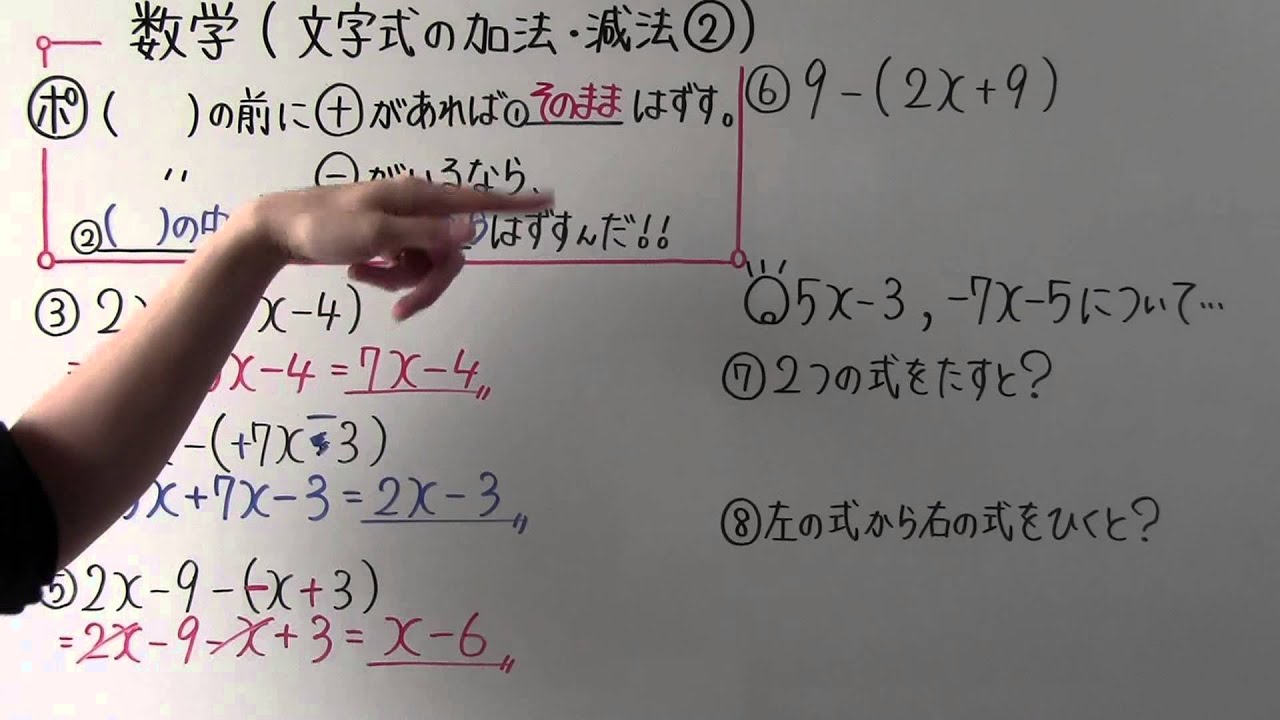 数学(文字式の加法・減法②)
ポ ( )の前に⊕があれば①そのままはずす。
〃 ⊖がいるなら、
②( )の中 はずすんだ!!
③ 2 x-4)
= x-4=7x-4
-(+7x-3)
x+7x-3=2x-3
⑤ 2x-9-(-x+3)
=2x-9-x+3=x-6
⑥ 9-(2x+9)
5x-3, -7x-5について…
⑦ 2つの式をたすと?
⑧ 左の式から右の式をひくと?